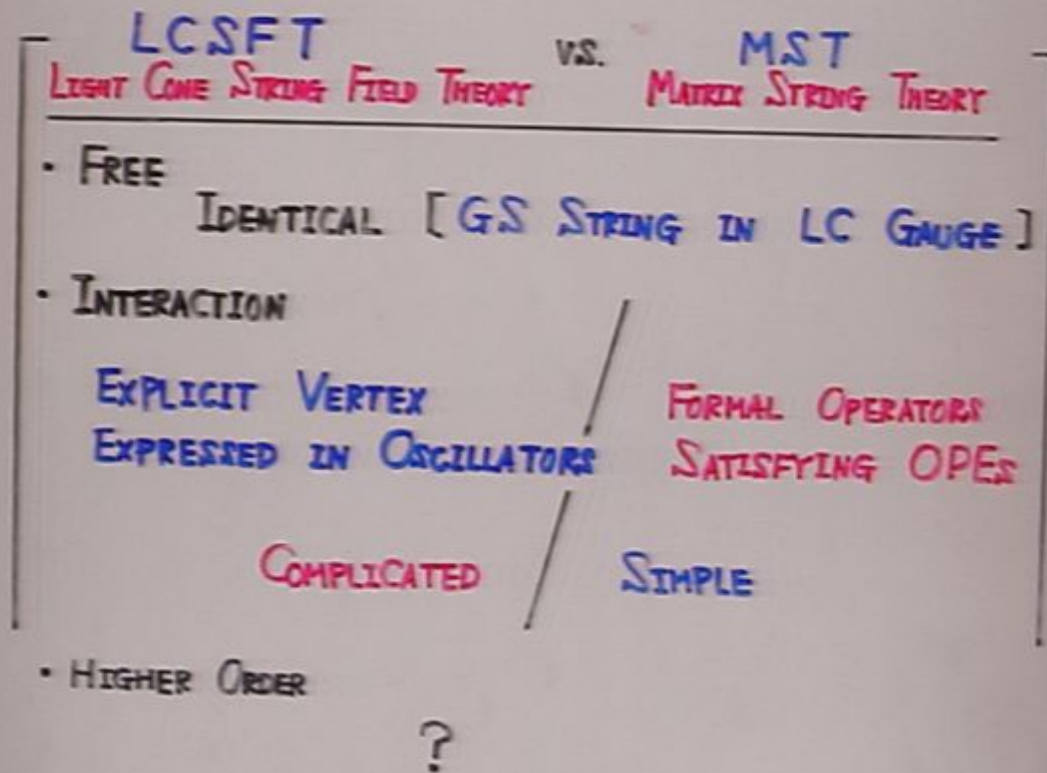 LCSFT VS. MST
LIGHT CONE STRING FIELD THEORY MATRIX STRING THEORY
· FREE
IDENTICAL [GS STRING IN LC GAUGE]
· INTERACTION
EXPLICIT VERTEX FORMAL OPERATORS
EXPRESSED IN OSCILLATORS SATISFYING OPEs
COMPLICATED SIMPLE
· HIGHER ORDER
?